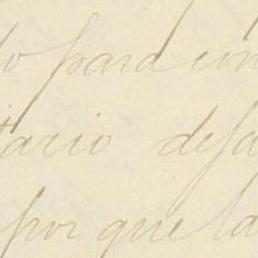 o para con
tario desa
por que la